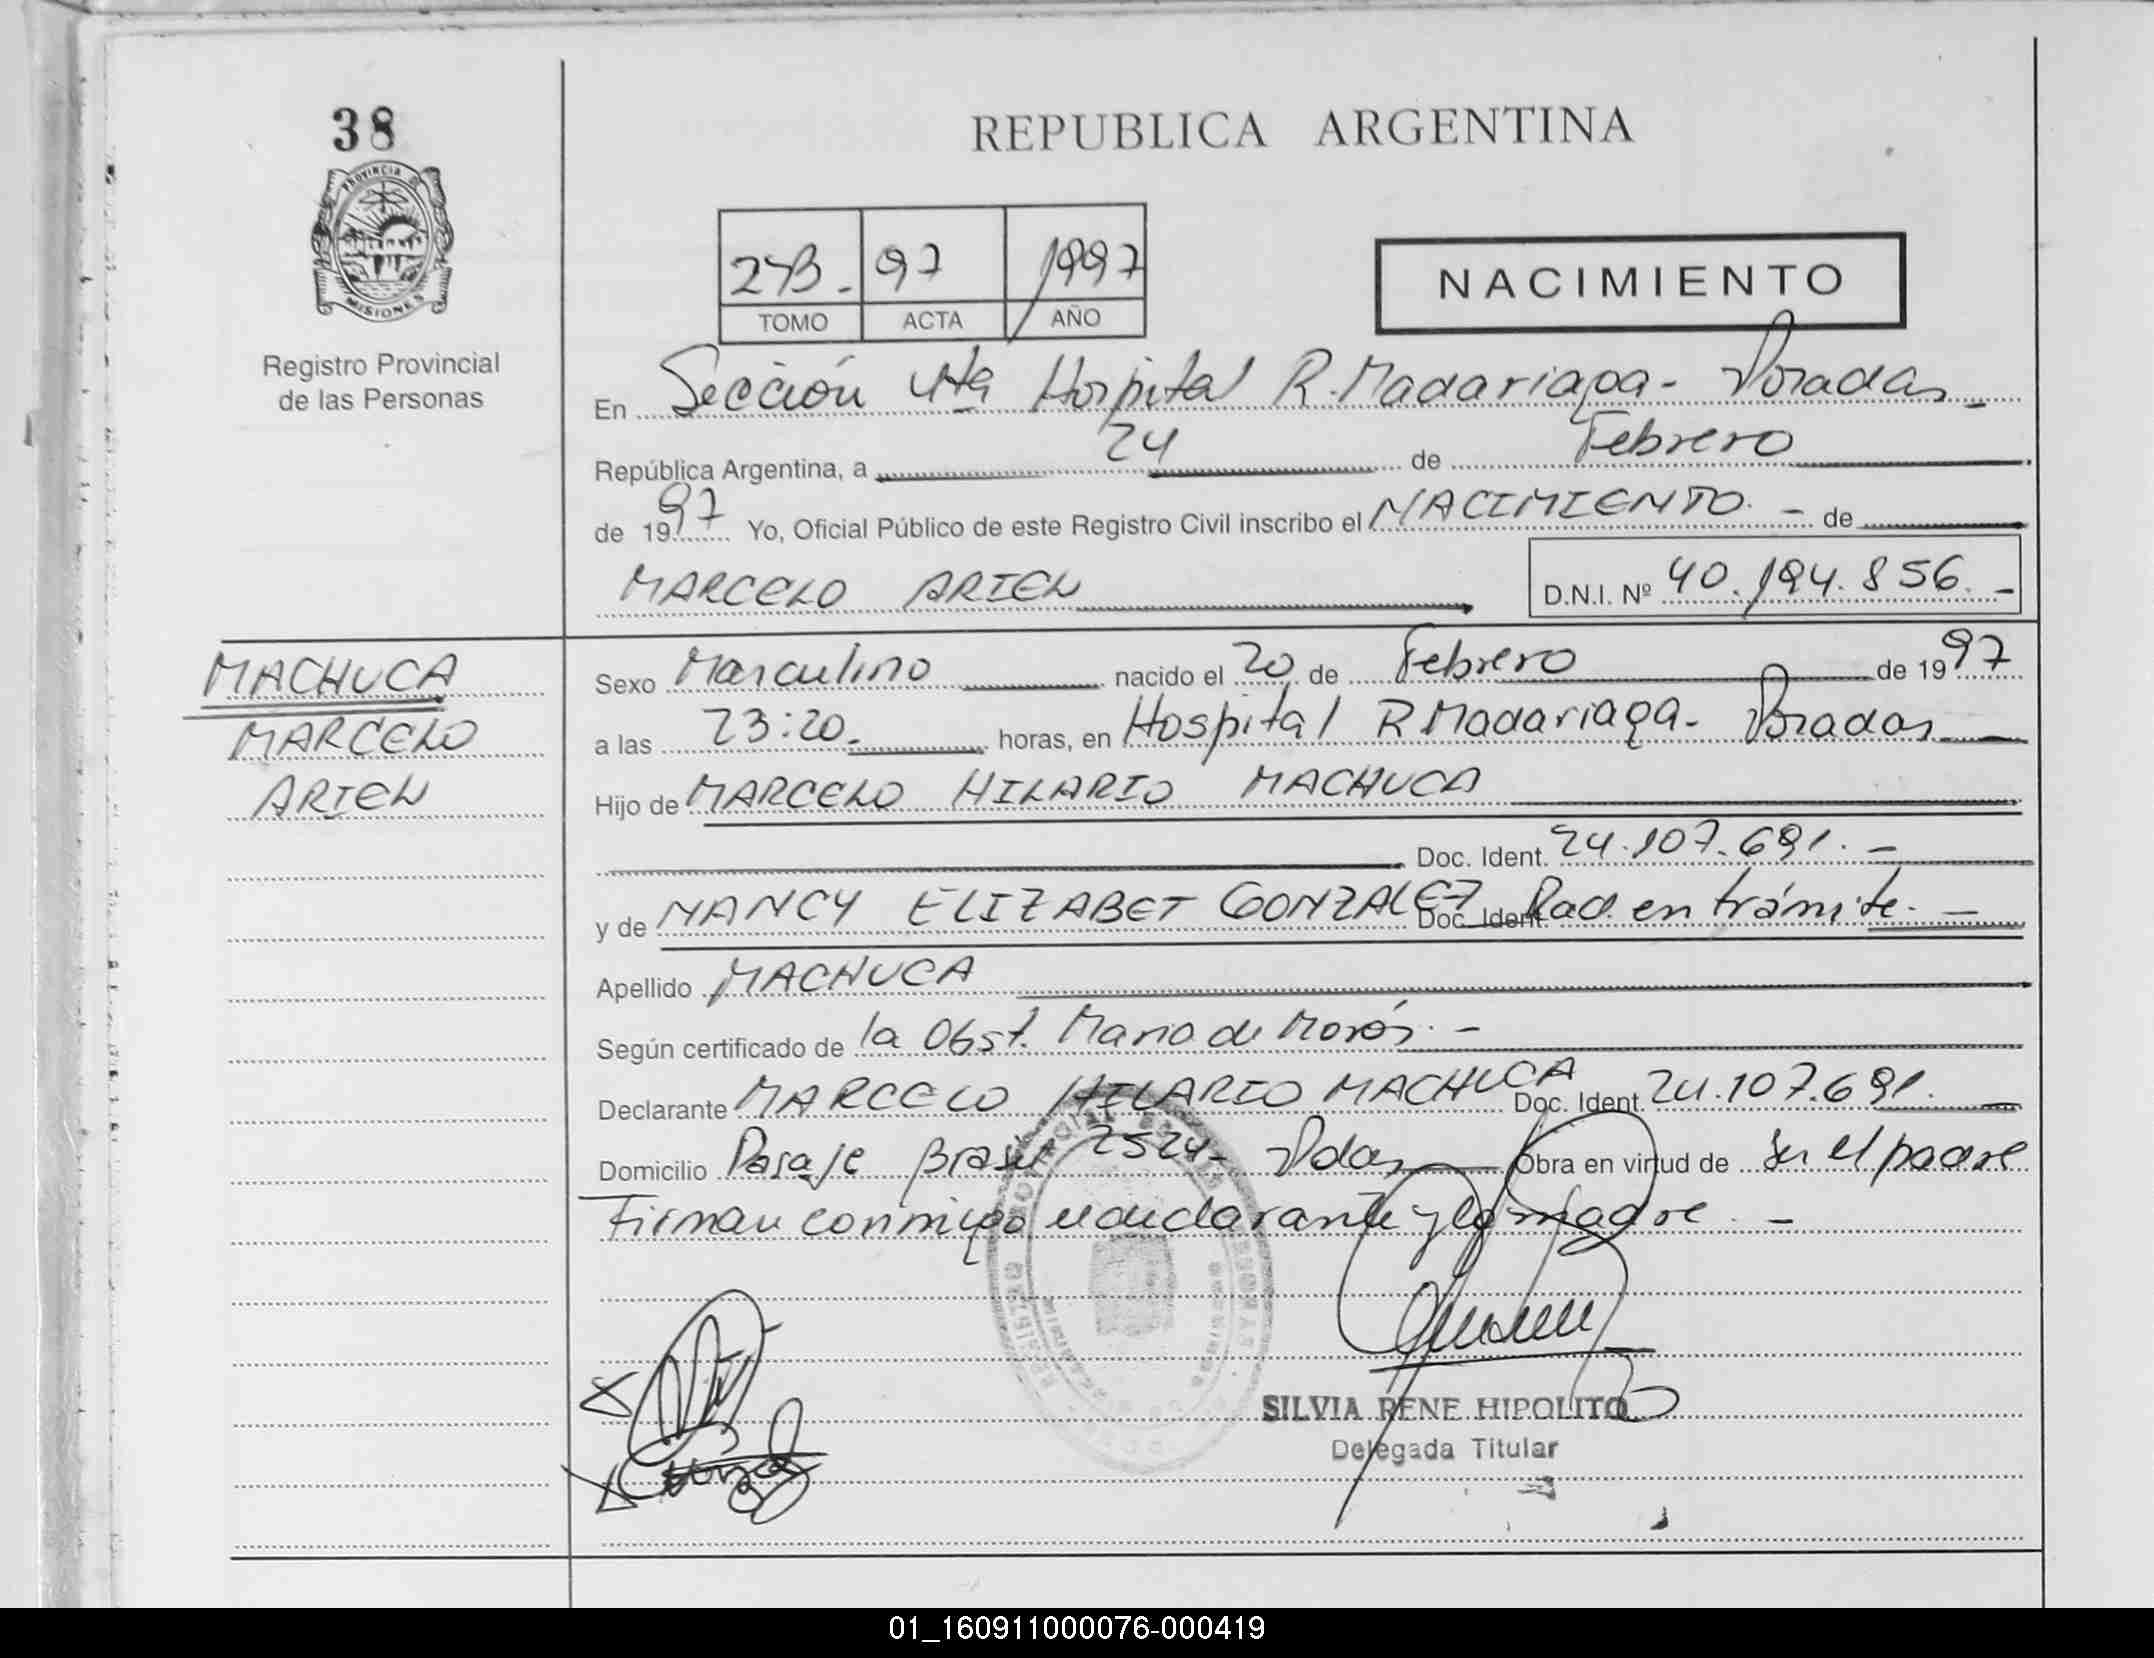 38
REPUBLICA ARGENTINA
PROVINCIA DE MISIONES
Registro Provincial
de las Personas
2 97 1997
TOMO ACTA AÑO
NACIMIENTO
En Sección 4ta Hospital R. Madariaga - Posadas -
República Argentina, a 24 de Febrero
de 1997 Yo, Oficial Público de este Registro Civil inscribo el NACIMIENTO - de
MARCELO ARIEL D.N.I. Nº 40.194.856.-
MACHUCA
MARCELO
ARIEL
Sexo Masculino nacido el 20 de Febrero de 1997
a las 23:20. horas, en Hospital R Madariaga - Posadas -
Hijo de MARCELO HILARIO MACHUCA
Doc. Ident. 24.107.691.-
y de NANCY ELIZABET GONZALEZ Doc. Ident. Rad. en trámite. -
Apellido MACHUCA
Según certificado de la Obst. Maria de -
Declarante MARCELO HILARIO MACHUCA Doc. Ident. 24.107.691. -
Domicilio Pasaje Brasil 2524 - Pdas Obra en virtud de ser el padre
Firman conmigo el declarante y la madre. -
SILVIA RENE HIPOLITO
Delegada Titular
01_160911000076-000419